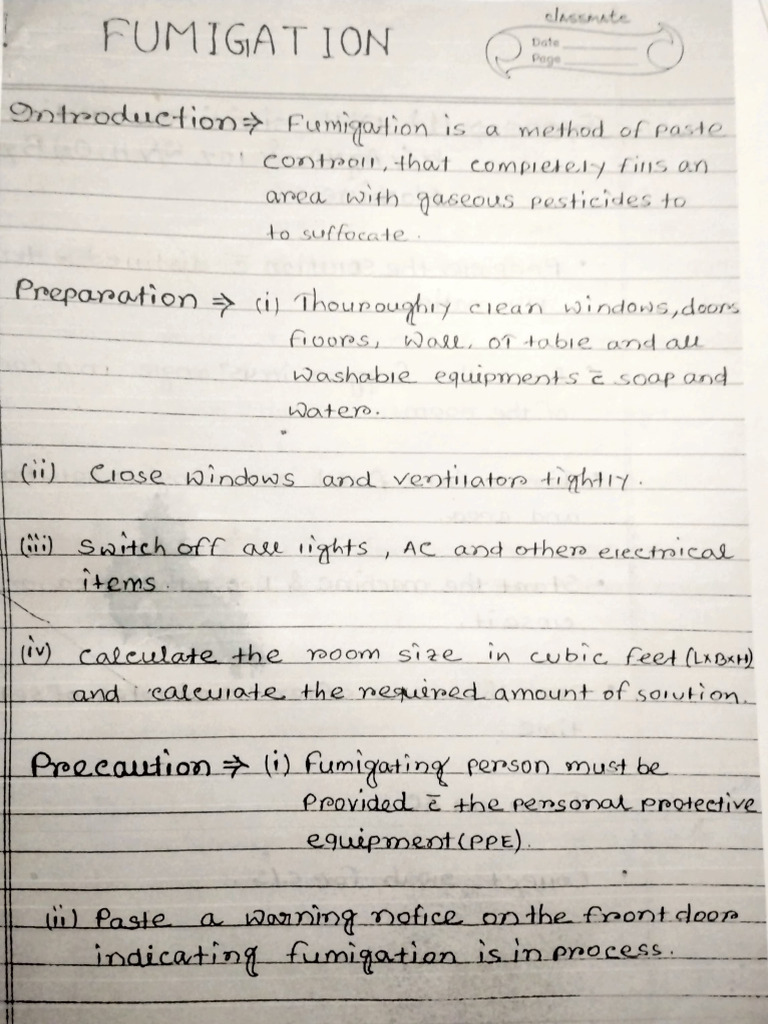 FUMIGATION
classmate
Date
Page
Introduction ⇒ Fumigation is a method of paste
controll, that completely fills an
area with gaseous pesticides to
to suffocate.
Preparation ⇒ (i) Thouroughly clean windows, doors
floors, wall, OT table and all
washable equipments c̄ soap and
water.
(ii) Close windows and ventilator tightly.
(iii) Switch off all lights, AC and other electrical
items.
(iv) Calculate the room size in cubic feet (L×B×H)
and calculate the required amount of solution.
Precaution ⇒ (i) Fumigating person must be
Provided c̄ the personal protective
equipment (PPE).
(ii) Paste a warning notice on the front door
indicating fumigation is in process.